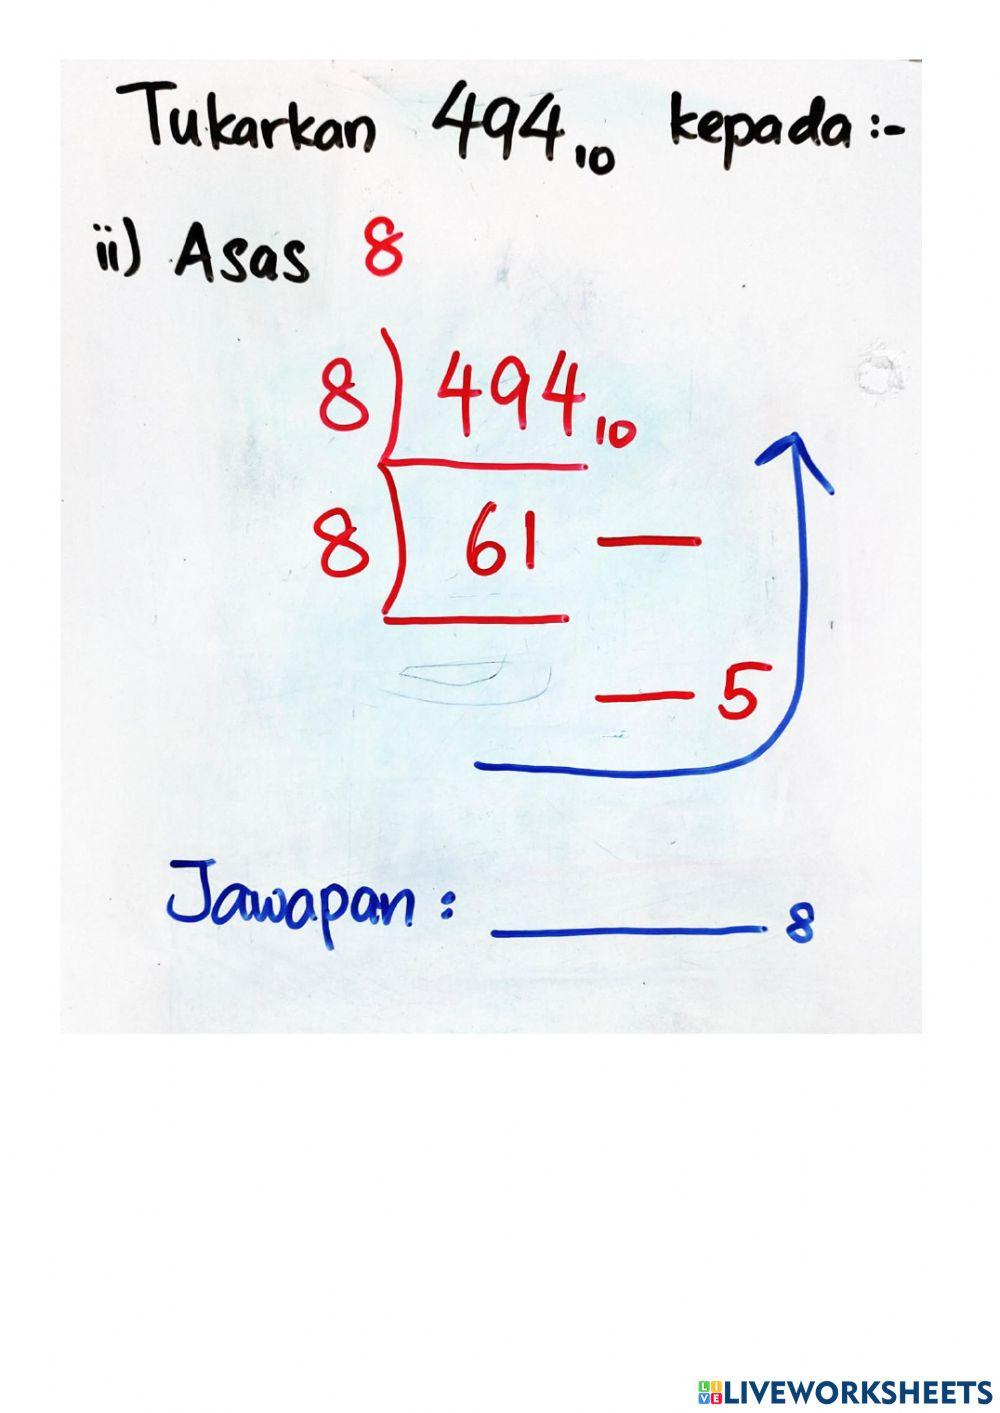 Tukarkan 494₁₀ kepada :-
ii) Asas 8
8 ) 494₁₀
8 ) 61 —
— 5
Jawapan : ________ 8
LIVEWORKSHEETS